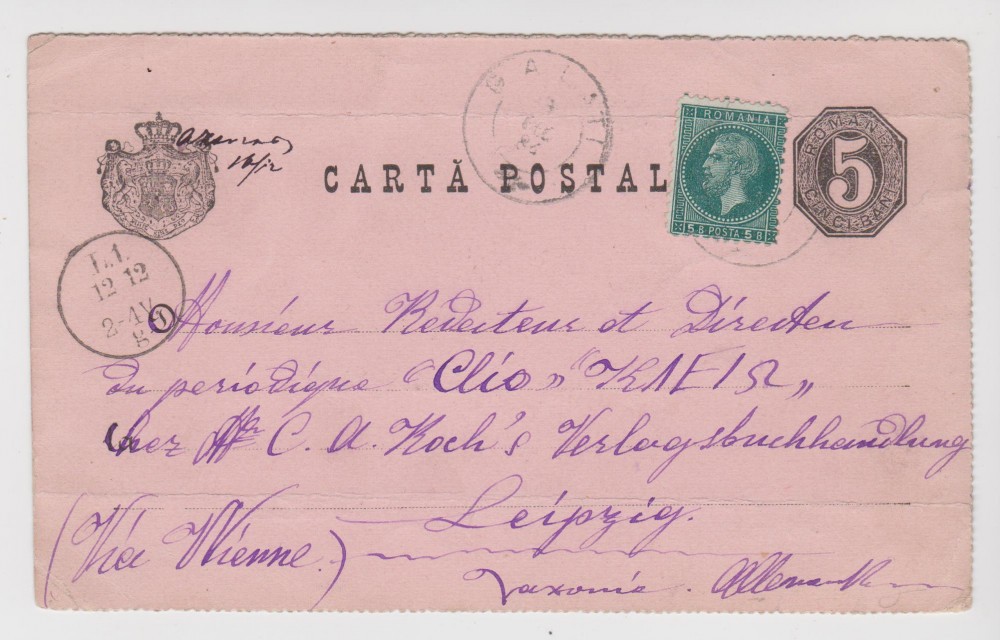 GALATI
ROMANIA
5 B POSTA 5 B
ROMANIA
5
CINCI BANI
16/12
CARTĂ POSTAL
L.1.
12 12
2-4 V
Monsieur Redacteur et Directeu
du periodique "Clio" "ΚΛΕΙΩ"
chez Mr C. A. Koch's Verlagsbuchhandlung
Leipzig.
(Via Vienne.)
Saxonie. Allemank